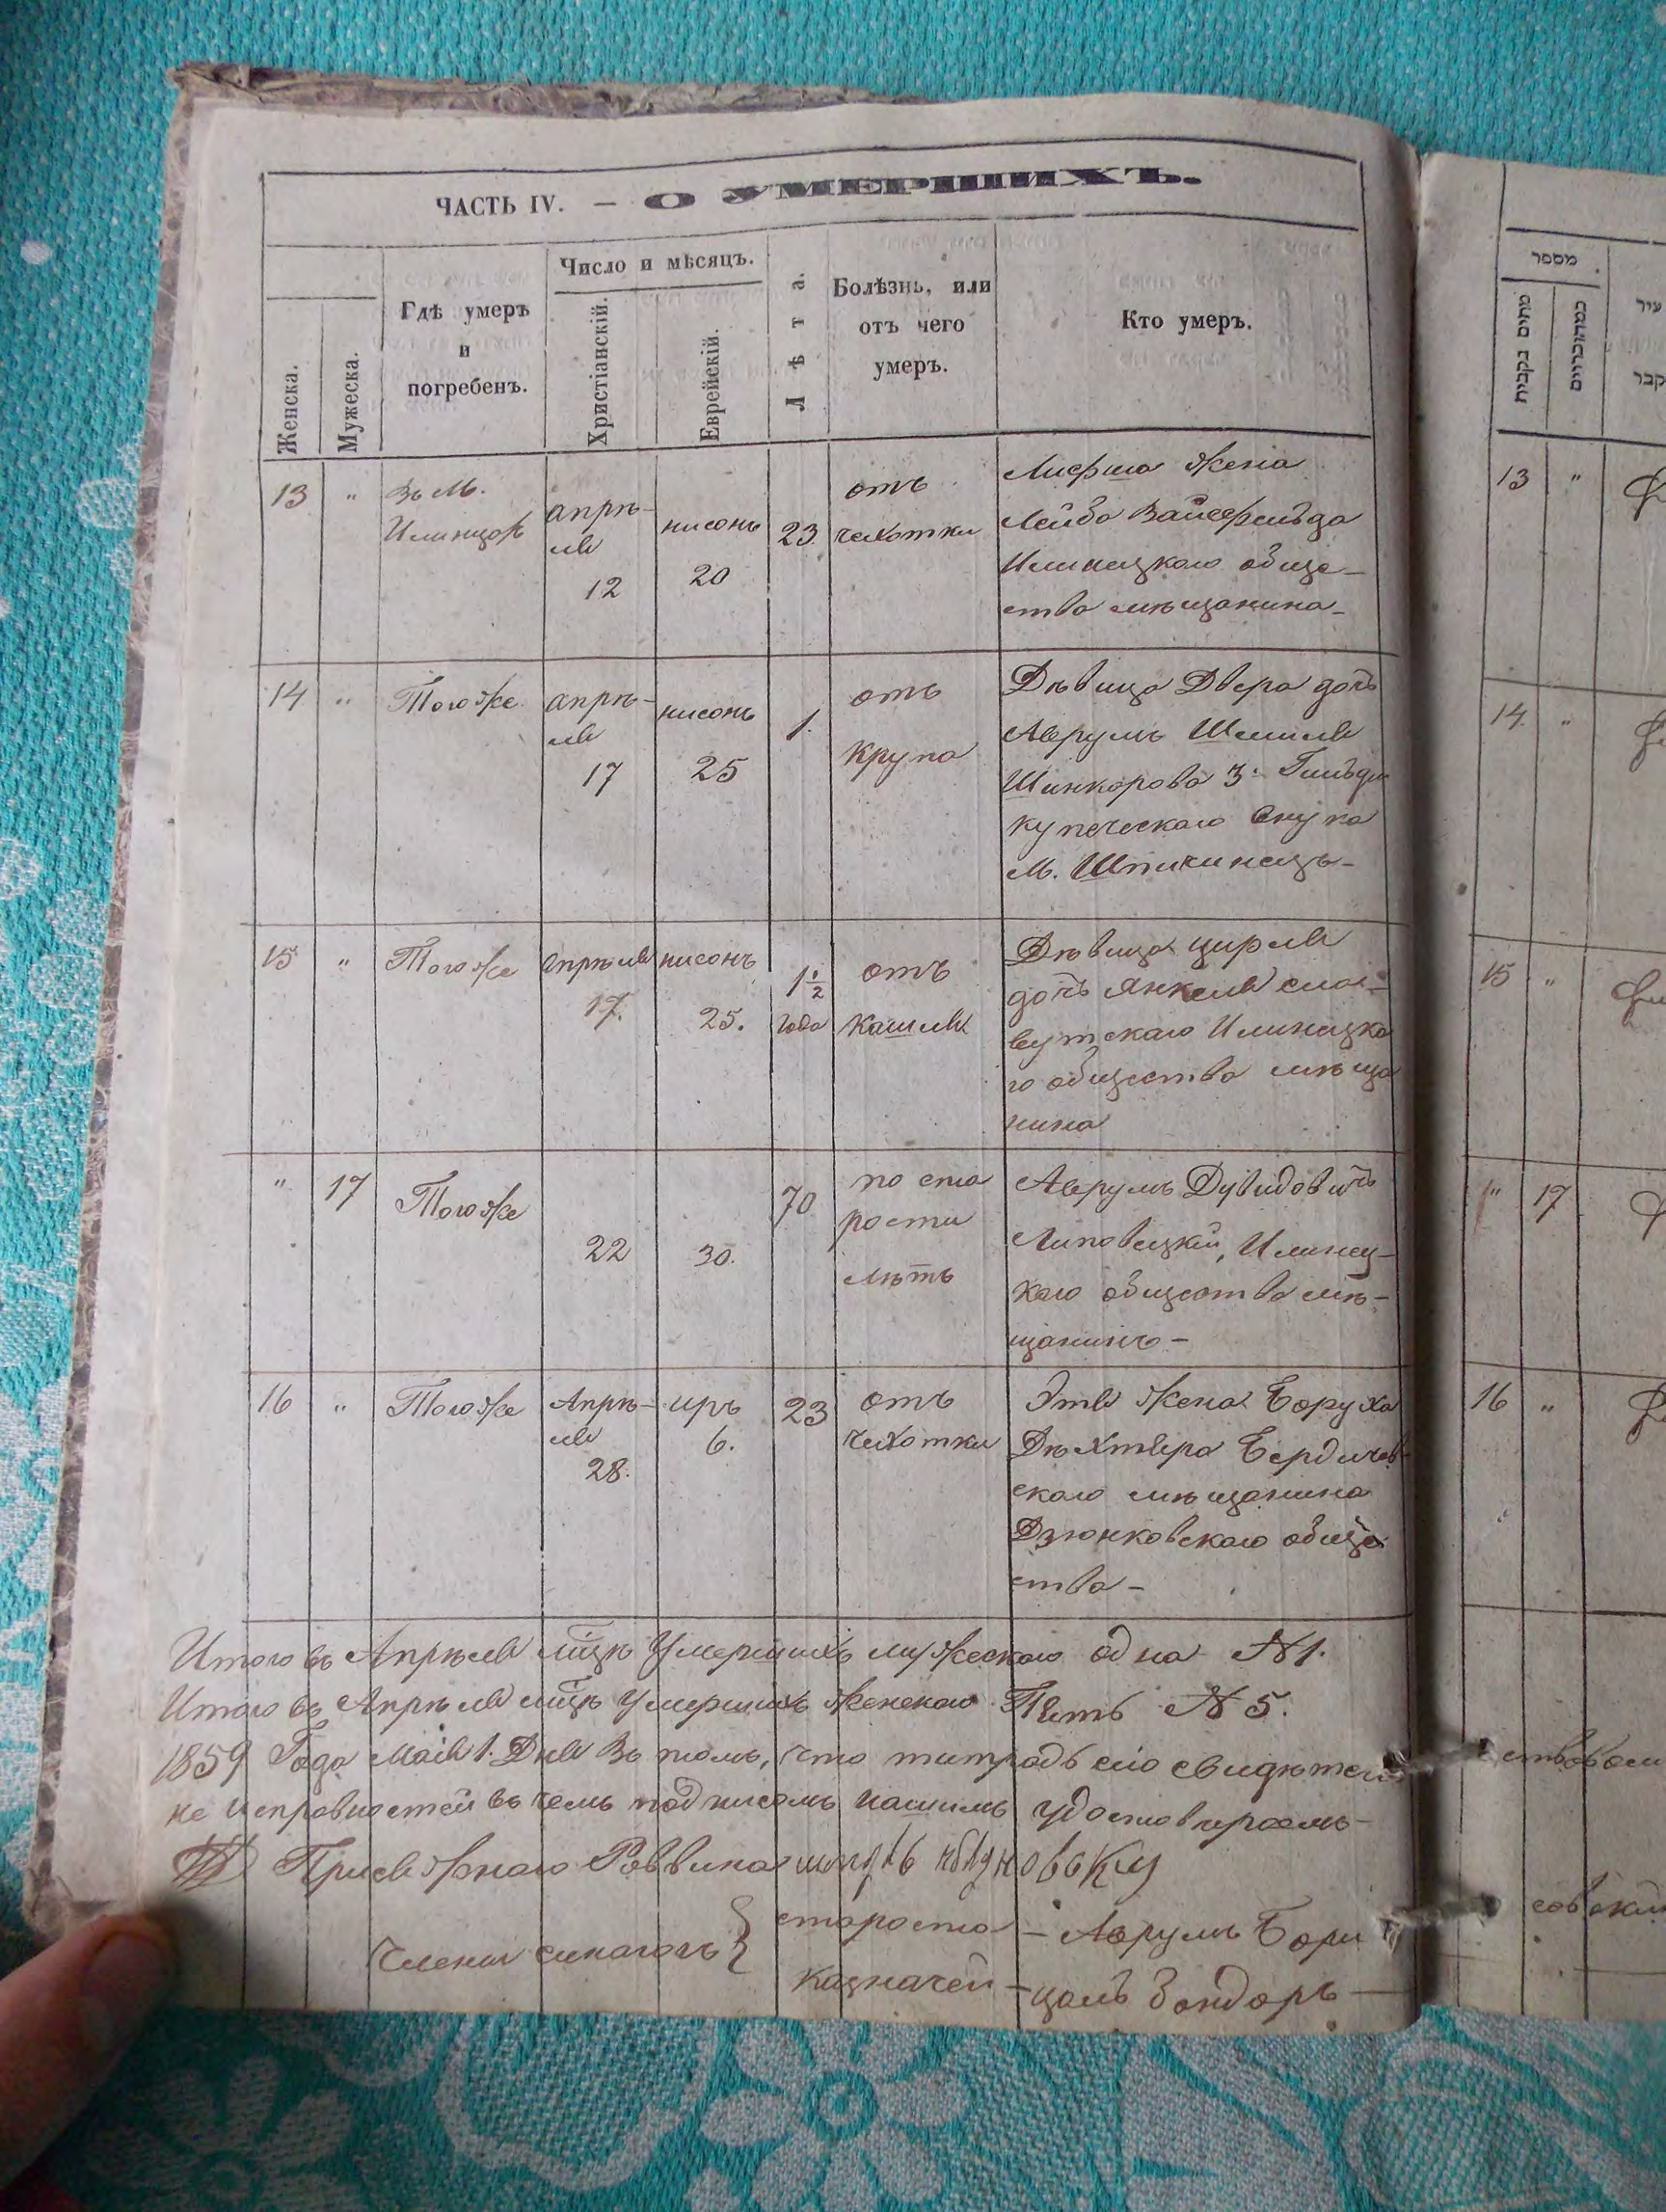 ЧАСТЬ IV. — О УМЕРШИХЪ.
Женска.
Мужеска.
Гдѣ умеръ
и
погребенъ.
Число и мѣсяцъ.
Христіанскій.
Еврейскій.
Лѣта.
Болѣзнь, или
отъ чего
умеръ.
Кто умеръ.
13
"
Въ М.
Илинцахъ
апрѣ-
ля
12
нисонъ
20
23
отъ
чехотки
жена
Лейба Вайсфельда
Илинецкого обще-
ства мѣщанина-
14
"
Тогоже
апрѣ-
ля
17
нисонъ
25
1.
отъ
крупа
Дѣвица Двера дочь
Аврумъ Шмиля
Шинкарова 3. Гильди
купеческаго
М.
15
"
Тогоже
апрѣля
17.
нисонъ
25.
1 1/2
года
отъ
кашля
Дѣвица Цирля
дочь Янкеля сла-
вутскаго Илинецка
го общества мѣща
нина
"
17
Тогоже
22
30.
70
по ста
рости
лѣтъ
Аврумъ Дувидовичъ
Липовецкій, Илинец-
каго общества мѣ-
щанинъ-
16
"
Тогоже
Апрѣ-
ля
28.
иръ
6.
23
отъ
чехотки
Этя жена Боруха
Дѣхтяра Бердичев-
скаго мѣщанина
Дзюнковскаго обще
ства-
Итого въ Апрѣля мцѣ Умершихъ мужескаго одна N 1.
Итого въ Апрѣля мцѣ Умершихъ женскаго Пять N 5.
1859 Года Мая 1. Дня Въ томъ, что титрадь сіо свидѣтел
не исправностей въ чемъ подписомъ нашимъ удостовѣраемъ-
Присяжнаго Раввина
Члены синагогъ
староста - Аврумъ
казначей -
מספר
13
"
14
"
15
"
"
17
16
"